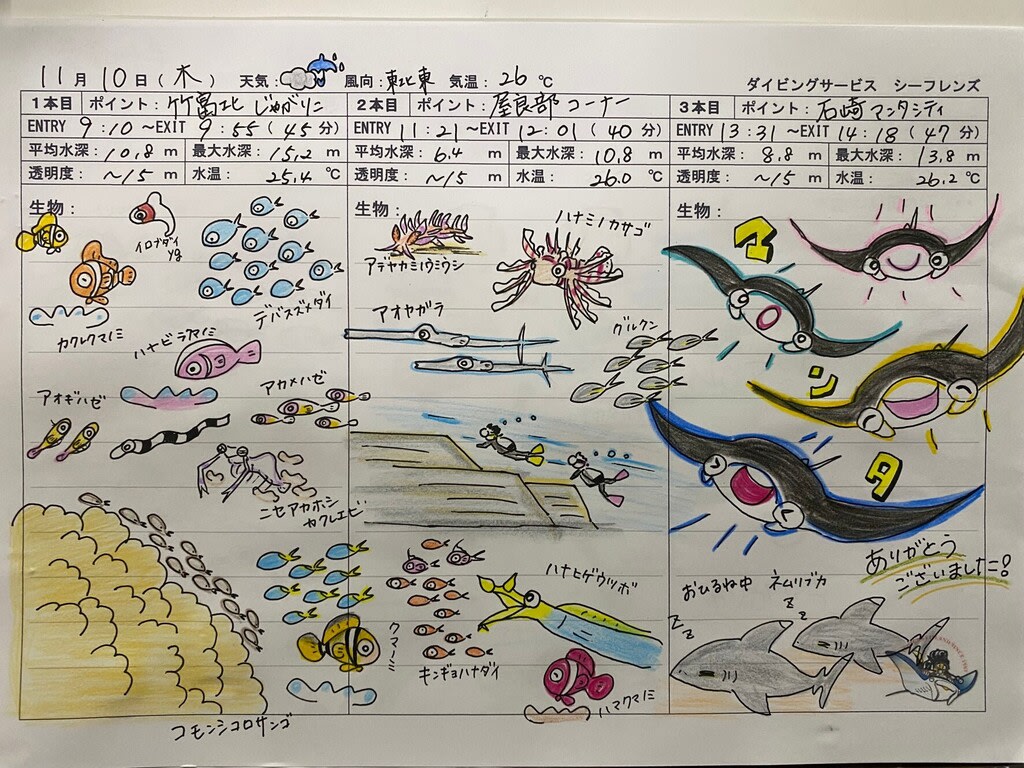 11月10日(木) 天気: 風向:東北東 気温:26℃
ダイビングサービス シーフレンズ
1本目 ポイント:竹富北 じゃがりこ
ENTRY 9:10 ~EXIT 9:55(45分)
平均水深:10.8 m 最大水深:15.2 m
透明度:~15 m 水温: 25.4 ℃
生物:
イロブダイ
yg
デバスズメダイ
カクレクマノミ
ハナビラクマノミ
アオギハゼ
アカメハゼ
ニセアカホシ
カクレエビ
クマノミ
コモンシコロサンゴ
2本目 ポイント:屋良部コーナー
ENTRY 11:21 ~EXIT 12:01(40分)
平均水深:6.4 m 最大水深:10.8 m
透明度:~15 m 水温: 26.0 ℃
生物:
ハナミノカサゴ
アデヤカミノウミウシ
アオヤガラ
グルクン
ハナヒゲウツボ
キンギョハナダイ
ハマクマノミ
3本目 ポイント:石崎マンタシティ
ENTRY 13:31 ~EXIT 14:18(47分)
平均水深: 8.8 m 最大水深:13.8 m
透明度:~15 m 水温: 26.2 ℃
生物:
マ
ン
タ
ありがとう
ございました!
おひるね中 ネムリブカ
z z z z